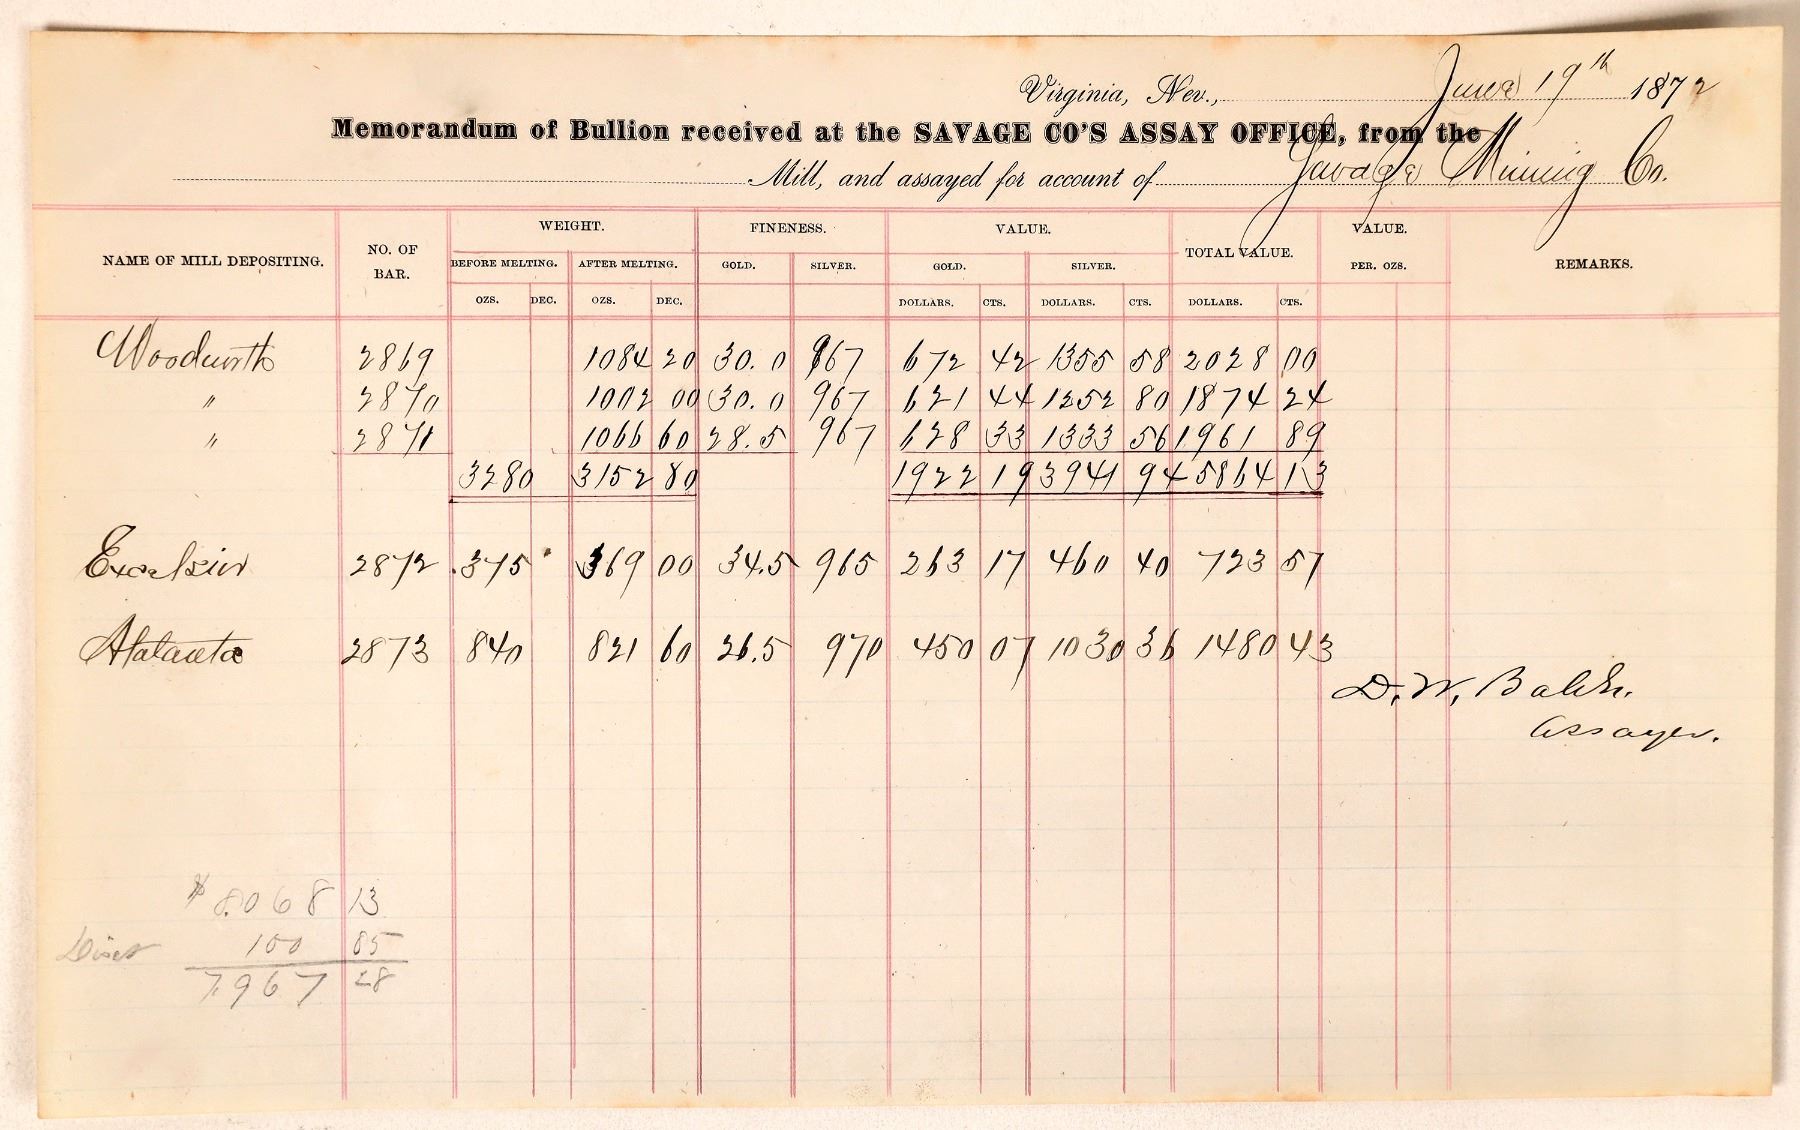 Virginia, Nev., June 19th 1872
Memorandum of Bullion received at the SAVAGE CO'S ASSAY OFFICE, from the
Mill, and assayed for account of Savage Mining Co.
NAME OF MILL DEPOSITING. NO. OF BAR. WEIGHT. FINENESS. VALUE. TOTAL VALUE. VALUE. REMARKS.
BEFORE MELTING. AFTER MELTING. GOLD. SILVER. GOLD. SILVER. PER. OZS.
OZS. DEC. OZS. DEC. DOLLARS. CTS. DOLLARS. CTS. DOLLARS. CTS.
Woodworth 2869 1084 20 30.0 967 672 42 1355 58 2028 00
" 2870 1002 00 30.0 967 621 44 1252 80 1874 24
" 2871 1066 60 28.5 967 628 33 1333 56 1961 89
3280 3152 80 1922 19 3941 94 5864 13
Excelsior 2872 375 369 00 34.5 965 263 17 460 40 723 57
Atalanta 2873 840 821 60 26.5 970 450 07 1030 36 1480 43
D. W. Balch.
Assayer.
$ 8.068 13
Disct 100 85
7.967 28